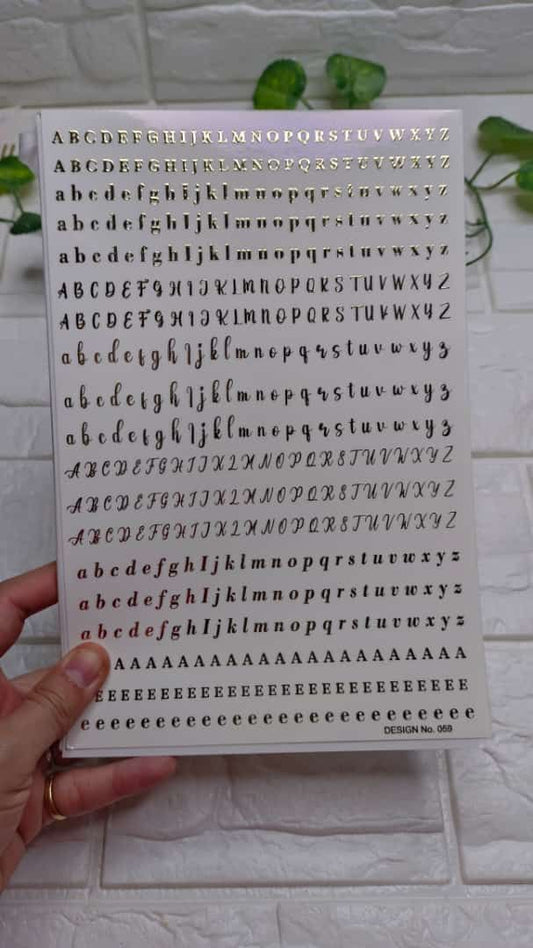 A B C D E F G H I J K L M N O P Q R S T U V W X Y Z
A B C D E F G H I J K L M N O P Q R S T U V W X Y Z
a b c d e f g h i j k l m n o p q r s t u v w x y z
a b c d e f g h I j k l m n o p q r s t u v w x y z
a b c d e f g h I j k l m n o p q r s t u v w x y z
A B C D E F G H I J K L M N O P Q R S T U V W X Y Z
A B C D E F G H I J K L M N O P Q R S T U V W X Y Z
a b c d e f g h I j k l m n o p q r s t u v w x y z
a b c d e f g h I j k l m n o p q r s t u v w x y z
a b c d e f g h I j k l m n o p q r s t u v w x y z
A B C D E F G H I J K L M N O P Q R S T U V W X Y Z
A B C D E F G H I J K L M N O P Q R S T U V W X Y Z
A B C D E F G H I J K L M N O P Q R S T U V W X Y Z
a b c d e f g h I j k l m n o p q r s t u v w x y z
a b c d e f g h I j k l m n o p q r s t u v w x y z
a b c d e f g h I j k l m n o p q r s t u v w x y z
A A A A A A A A A A A A A A A A A A A A A A A A
E E E E E E E E E E E E E E E E E E E E E E E E E E E E E
e e e e e e e e e e e e e e e e e e e e e e e e e e
DESIGN No. 059